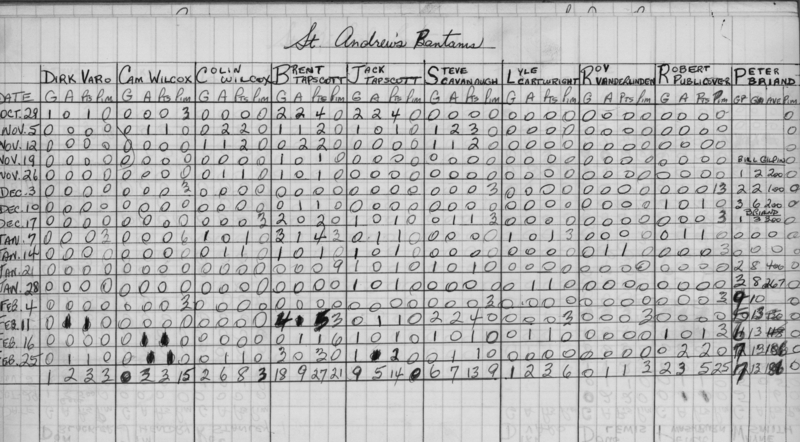 St. Andrew's Bantams
DIRK VARO CAM WILCOX COLIN WILCOX BRENT TAPSCOTT JACK TAPSCOTT STEVE CAVANAUGH LYLE CARTWRIGHT ROY VANDERLINDEN ROBERT PUBLICOVER PETER BRIAND
DATE G A Pts Pim G A Pts Pim G A Pts Pim G A Pts Pim G A Pts Pim G A Pts Pim G A Pts Pim G A Pts Pim G A Pts Pim GP GA AVE Pim
OCT. 29 1 0 1 0 0 0 0 3 0 0 0 0 2 2 4 0 2 2 4 0 0 0 0 0 0 0 0 0 0 0 0 0 0 0 0 0
NOV. 5 0 0 0 0 0 1 1 0 0 2 2 0 1 1 2 0 1 0 1 0 1 2 3 0 0 0 0 0 0 0 0 0 0 0 0 0
NOV. 12 0 0 0 0 0 0 0 0 1 1 2 0 0 2 2 0 0 0 0 0 1 1 2 0 0 0 0 0 0 0 0 0 0 0 0 0
NOV. 19 0 0 0 0 0 0 0 0 0 0 0 0 1 0 1 0 0 0 0 0 0 0 0 0 0 0 0 0 0 0 0 0 0 0 0 0 BILL GILPIN
NOV. 26 0 0 0 0 0 0 0 0 0 1 1 0 1 0 1 0 0 0 0 0 0 0 0 0 0 0 0 0 0 0 0 0 0 0 0 0 1 2 200 0
DEC. 3 0 0 0 0 0 0 0 3 0 0 0 0 0 0 0 0 0 0 0 0 0 0 0 3 0 0 0 0 0 0 0 0 0 0 0 3 2 2 100 0
DEC. 10 0 0 0 0 0 0 0 0 0 0 0 0 0 1 1 0 0 0 0 0 0 0 0 0 0 0 0 0 0 0 0 0 1 0 1 0 3 6 200 0
BRIAND
DEC. 17 0 0 0 0 0 0 0 0 0 0 0 3 2 0 2 0 1 0 1 0 0 1 1 3 0 0 0 0 0 0 0 0 0 0 0 3 1 3 300 0
JAN. 7 0 0 0 3 0 0 0 6 1 0 1 0 3 1 4 3 0 1 1 0 0 0 0 0 1 0 1 3 0 0 0 0 0 1 1 0
JAN. 14 0 0 0 0 0 0 0 0 0 1 1 0 1 0 1 0 1 0 1 0 0 0 0 0 0 0 0 0 0 1 1 0 0 0 0 3
JAN. 21 0 0 0 0 0 0 0 0 0 0 0 0 0 0 0 9 1 0 1 0 1 0 1 0 0 0 0 0 0 0 0 0 0 0 0 0 2 8 400 0
JAN. 28 0 0 0 0 0 0 0 0 0 0 0 0 0 0 0 0 1 0 1 0 0 0 0 0 0 1 1 0 0 0 0 0 0 0 0 0 3 8 267 0
FEB. 4 0 0 0 0 0 0 0 3 0 0 0 0 0 0 0 0 0 0 0 0 0 0 0 3 0 0 0 0 0 0 0 0 0 0 0 3 10
FEB. 11 0 0 0 0 0 0 0 0 0 0 0 3 0 1 1 0 2 2 4 0 0 0 0 3 0 0 0 3 0 0 0 0 13
FEB. 16 0 0 0 0 0 0 0 0 0 0 0 1 1 6 1 0 1 0 1 0 1 0 0 1 1 0 0 0 0 0 1 0 1 3 6 13
FEB. 25 0 1 1 0 0 0 0 1 1 0 3 0 3 0 0 1 1 0 0 0 0 0 0 0 0 0 0 2 2 0 7 13 186 0
1 2 3 3 0 3 3 15 2 6 8 3 18 9 27 21 9 5 14 0 6 7 13 9 1 2 3 6 0 1 1 3 2 3 5 25 7 13 186 0